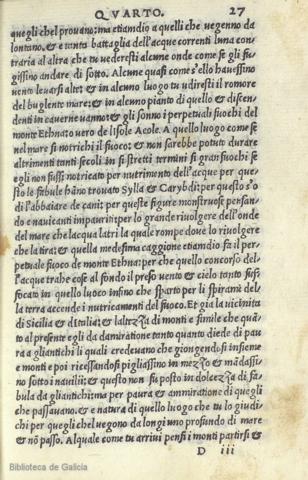 QVARTO. 27
quegli chel prouano: ma etiamdio a quelli che uegenno da
lontano. & e tanta battaglia dell'acque correnti luna con-
traria al altra che tu uederesti alcune onde come se gli fu-
gissino andare di sotto. Alcune quasi come s'ello hauessino
uento leuarsi alte: & in alcuno luogo tu udiresti il romore
del bugliente mare: & in alcuno pianto di quello & discen-
denti in cauerne uanno: & gli sonno i perpetuali fuochi del
monte Ethna: o uero de l'Isole Acole. A quello luogo come se
nel mare si notrichi il fuoco: & non sarebbe potuto durare
altrimenti tanti secoli in si stretti termini si gran fuochi se
egli non fussi notricato per nutrimento dell'acque per que-
sto le fabule hãno trouato Sylla & Carybdi: per questo s'o
di l'abbaiare de cani: per queste figure monstruose pensan-
do e nauicanti impauriti: per lo grande riuolgere dell'onde
del mare che lacqua latri la quale rompe dove lo riuolgere
che la tira: & quella medesima caggione etiamdio fa il per-
petuale fuoco de monte Ethna: per che quello concorso del-
l'acque trahe cose al fondo il preso uento & cielo tanto suf-
focato in quello luoco infino che sparto per li spirami del-
la terra accende i nutricamenti del fuoco. Et gia la uicinita
di Sicilia & d'Italia: & laltezza di monti e simile che quã-
to al presente egli da damiratione tanto quanto diede di pau
ra a gliantichi li quali credeuano che giongendosi insieme
e monti e poi ricessandosi pigliassino in mezzo & mãdassi-
no sotto i nauilii: & questo non fu posto in dolcezza di fa-
bula da gliantichi: ma per paura & ammiratione di quegli
che passauano. & e natura di quello luogo che tu lo giudi-
chi per quegli chel uegono da longi uno profundo di mare
& nõ passo. Al quale come tu arriui pensi i monti partirsi &
D iii
Biblioteca de Galicia